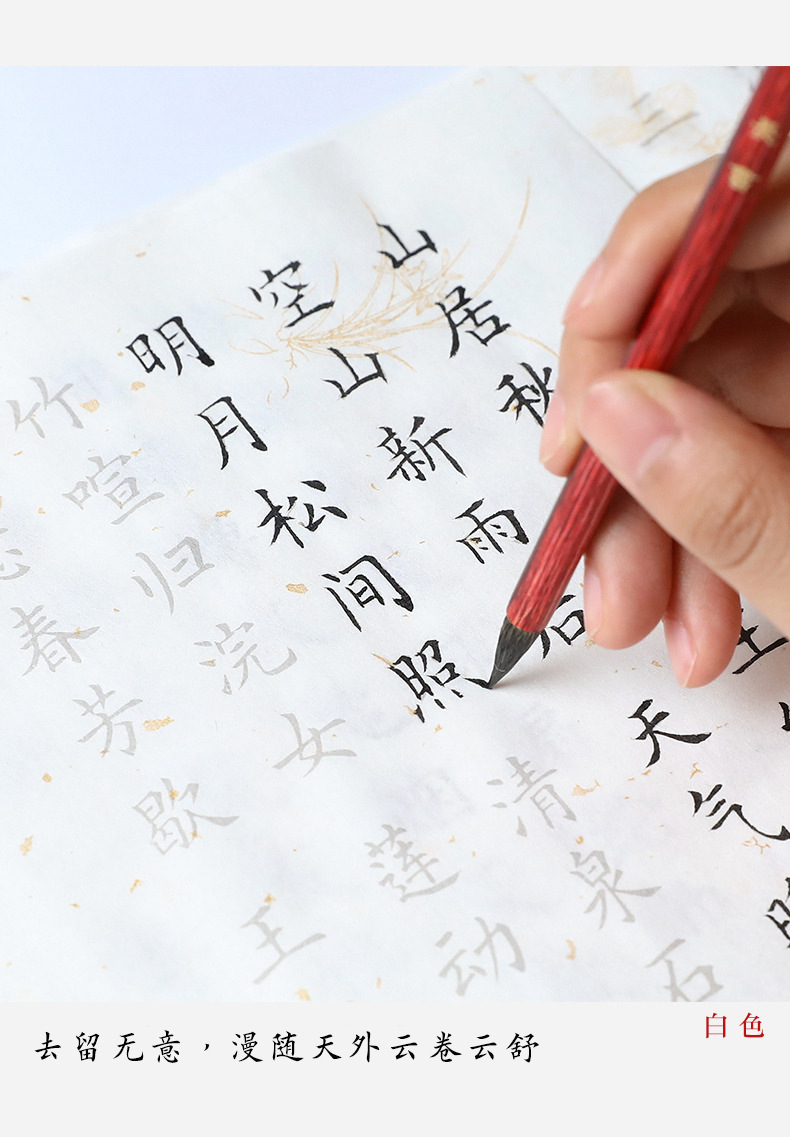 三
山居秋
王
空山新雨后
天气
明月松间照
清泉石
竹喧归浣女
莲动
春芳歇
王
去留无意，漫随天外云卷云舒
白色